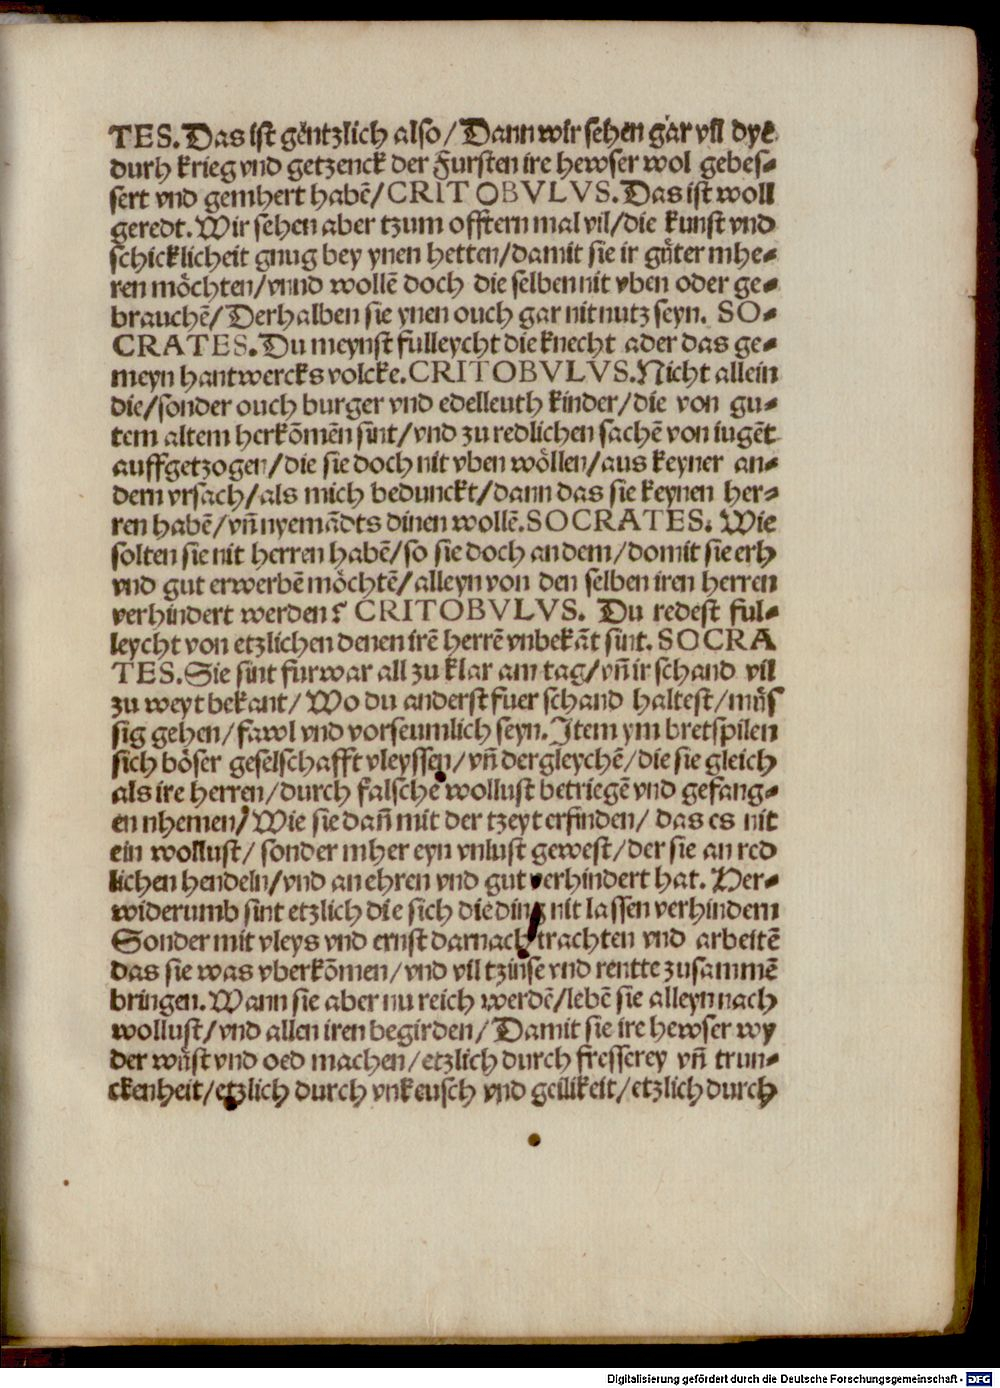 TES. Das ist gentzlich also/ Dann wir sehen gar vil dye
durh krieg vnd getzenck der Fursten ire hewser wol gebes-
sert vnd gemhert habē/ CRITOBVLVS. Das ist woll
geredt. Wir sehen aber tzum offtern mal vil/ die kunst vnd
schicklicheit gnug bey ynen hetten/ damit sie ir guͤter mhe-
ren moͤchten/ vnnd wollē doch die selben nit vben oder ge-
brauchē/ Derhalben sie ynen ouch gar nit nutz seyn. SO-
CRATES. Du meynst fulleycht die knecht ader das ge-
meyn hantwercks volcke. CRITOBVLVS. Nicht allein
die/ sonder ouch burger vnd edelleuth kinder/ die von gu-
tem altem herkōmēn sint/ vnd zu redlichen sachē von iugēt
auffgetzogen/ die sie doch nit vben woͤllen/ aus keyner an-
dern vrsach/ als mich bedunckt/ dann das sie keynen her-
ren habē/ vñ nyemādts dinen wollē. SOCRATES. Wie
solten sie nit herren habē/ so sie doch an dem/ domit sie erh
vnd gut erwerbē moͤchtē/ alleyn von den selben iren herren
verhindert werden? CRITOBVLVS. Du redest ful-
leycht von etzlichen denen irē herrē vnbekāt sint. SOCRA
TES. Sie sint furwar all zu klar am tag/ vñ ir schand vil
zu weyt bekant/ Wo du anderst fuer schand haltest/ muͤs
sig gehen/ fawl vnd vorseumlich seyn. Item ym bretspilen
sich boͤser geselschafft vleyssen/ vñ dergleychē/ die sie gleich
als ire herren/ durch falsche wollust betriegē vnd gefang-
en nhemen/ Wie sie dañ mit der tzeyt erfinden/ das es nit
ein wollust/ sonder mher eyn vnlust gewest/ der sie an red
lichen hendeln/ vnd an ehren vnd gut verhindert hat. Her-
widerumb sint etzlich die sich die ding nit lassen verhindern
Sonder mit vleys vnd ernst darnach trachten vnd arbeitē
das sie was vberkōmen/ vnd vil tzinse vnd rentte zusammē
bringen. Wann sie aber nu reich werdē/ lebē sie alleyn nach
wollust/ vnd allen iren begirden/ Damit sie ire hewser wy
der wuͤst vnd oed machen/ etzlich durch fresserey vñ trun-
ckenheit/ etzlich durch vnkeusch vnd geilikeit/ etzlich durch
Digitalisierung gefördert durch die Deutsche Forschungsgemeinschaft - DFG